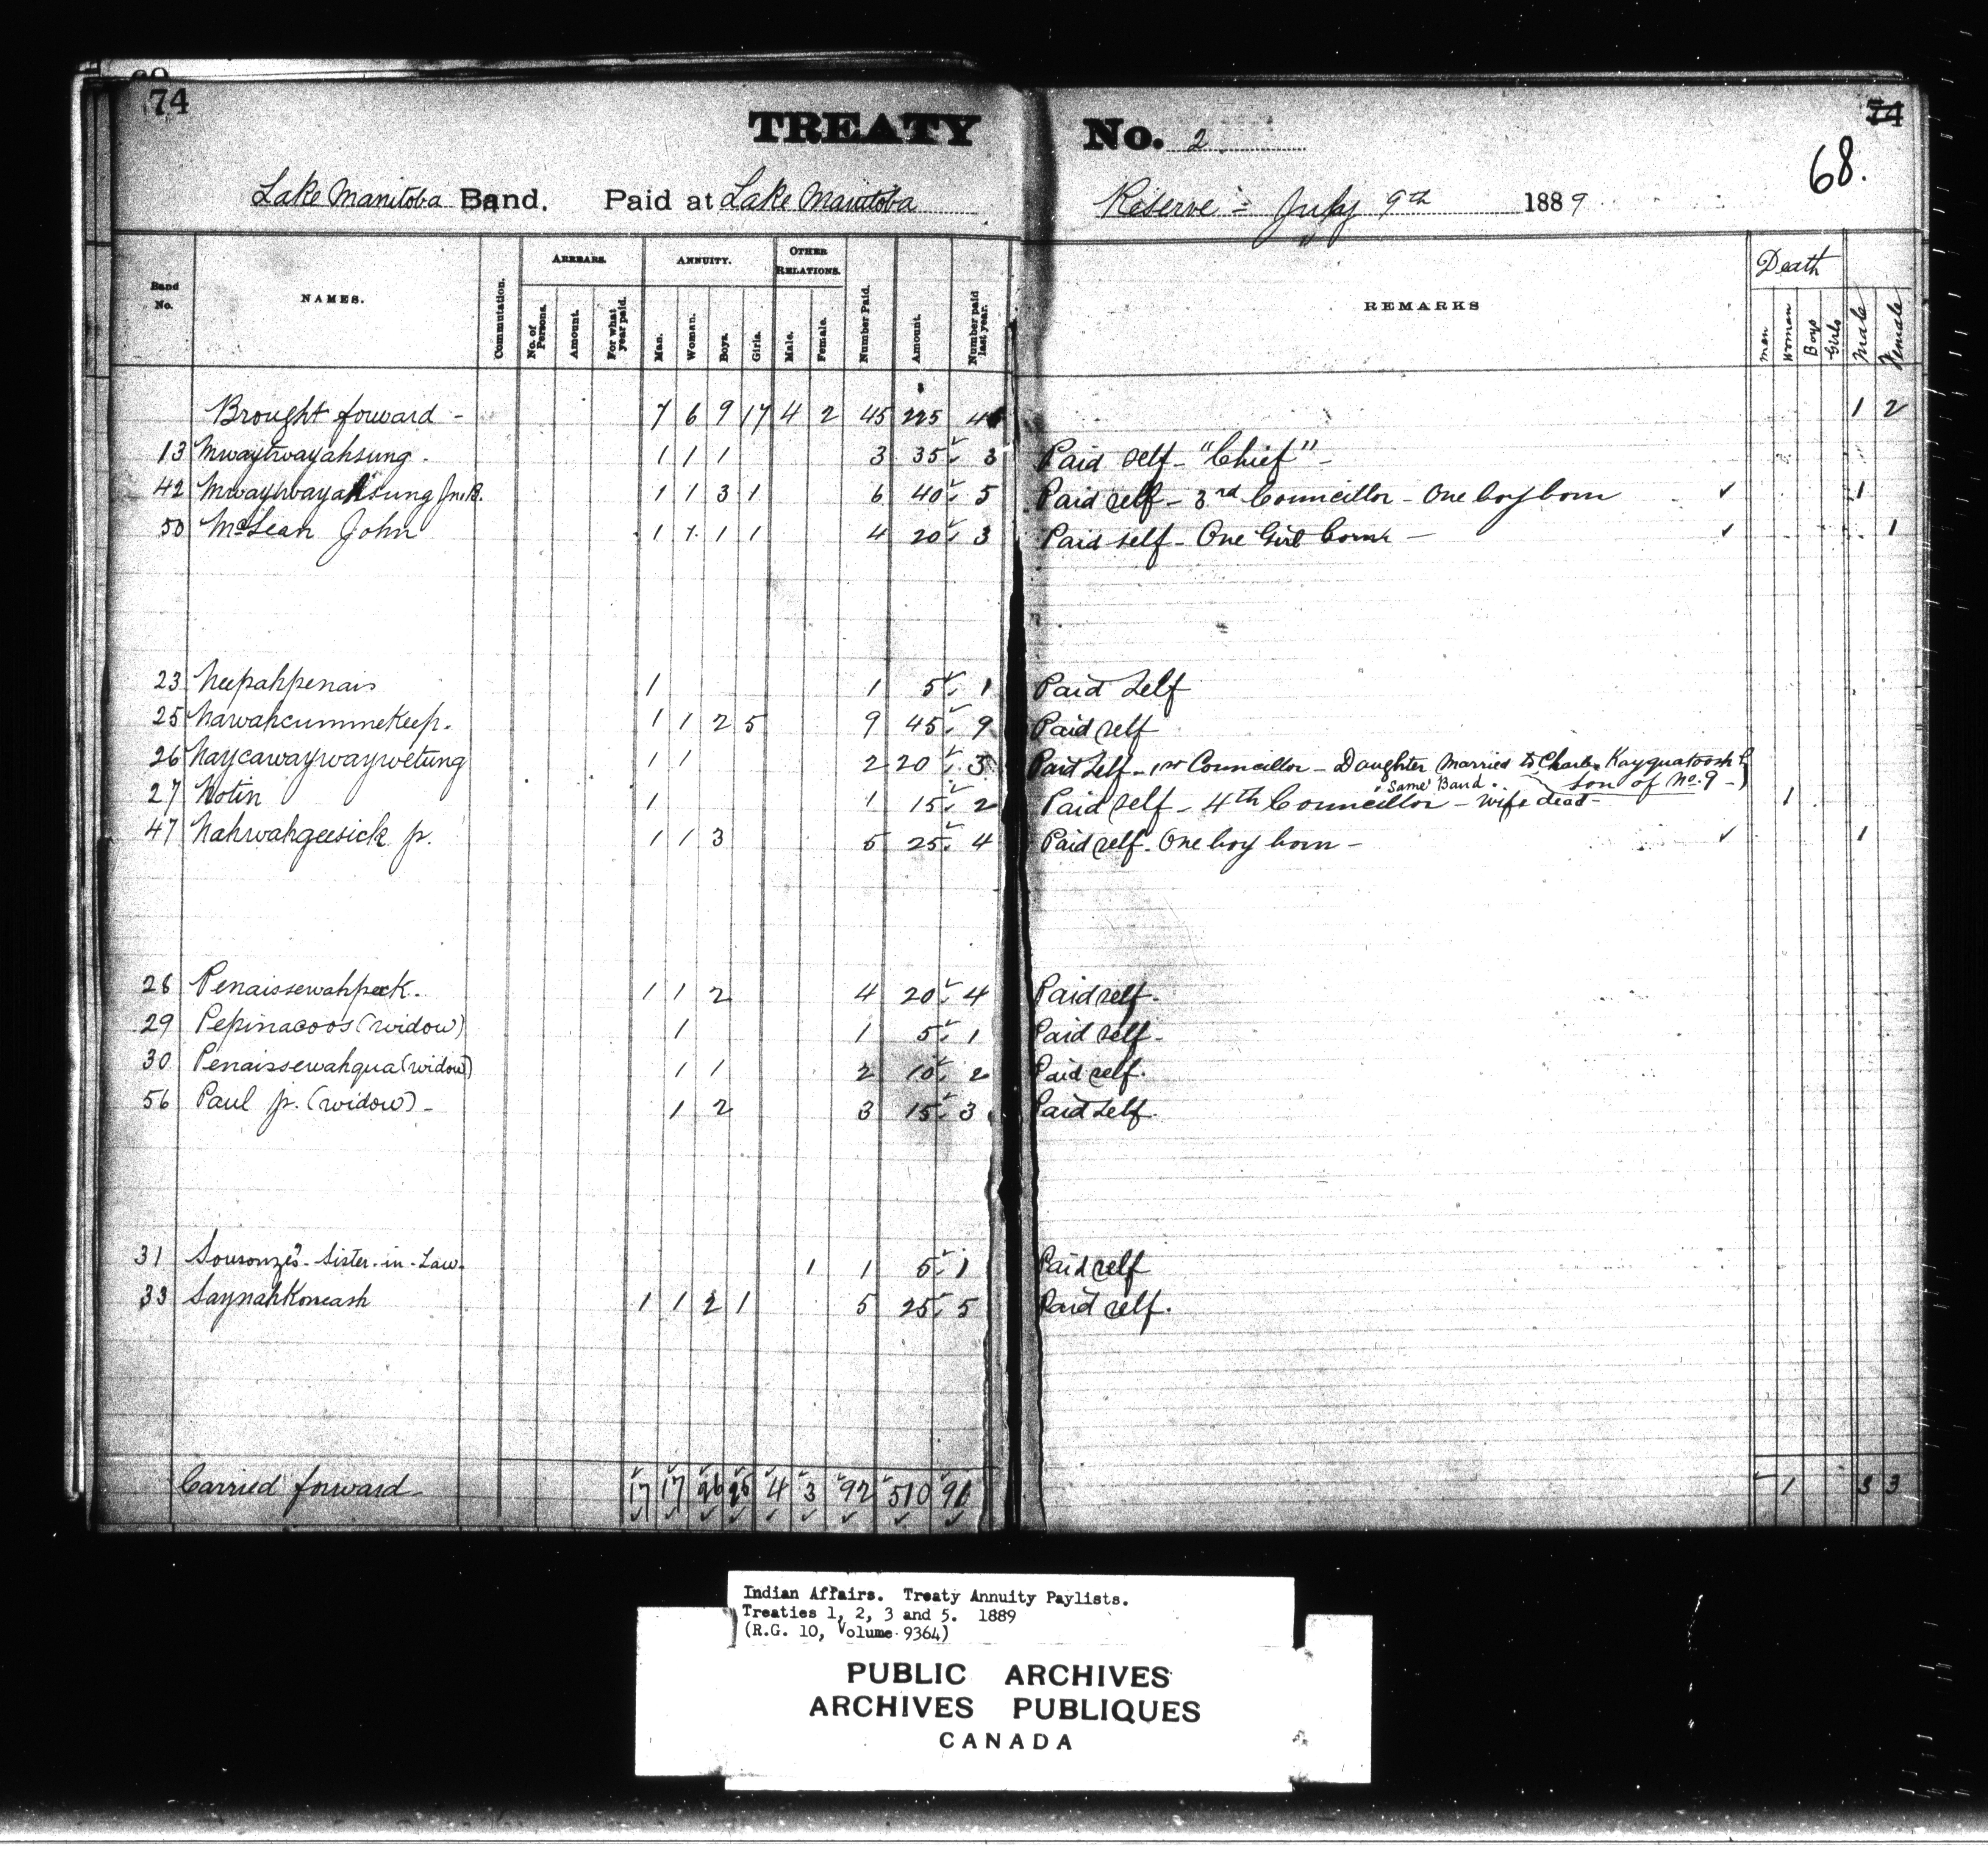 74
74
TREATY No. 2
68.
Lake Manitoba Band. Paid at Lake Manitoba Reserve - July 9th 1889
Band No. NAMES. Commutation. ARREARS. No. of Persons. Amount. For what year paid. ANNUITY. Man. Woman. Boys. Girls. OTHER RELATIONS. Male. Female. Number Paid. Amount. Number paid last year. REMARKS Death men Women Boys Girls Male Female
Brought forward - 7 6 9 17 4 2 45 225 1 2
13 Mwaytwayahsung - 1 1 1 3 35 3 Paid self - "Chief" -
42 Mwaywayahsung Jn. B. 1 1 3 1 6 40 5 Paid self - 3rd Councillor - One boy born 1
50 McLean John 1 1 1 1 4 20 3 Paid self - One Girl born - 1
23 Neepahpenais 1 1 5 1 Paid Self
25 Nawahcummekeep. 1 1 2 5 9 45 9 Paid self
26 Naycawaywaywetung 1 1 2 20 3 Paid Self - 1st Councillor - Daughter Married to Charles Kayquatoosh
Same Band. Son of No. 9 -)
27 Notin 1 1 15 2 Paid self - 4th Councillor - wife dead - 1
47 Nahwahgeesick p. 1 1 3 5 25 4 Paid self. One boy born - 1
28 Penaissewahpeek. 1 1 2 4 20 4 Paid self.
29 Pepinacoos (widow) 1 1 5 1 Paid self -
30 Penaissewahqua (widow) 1 1 2 10 2 Paid self.
56 Paul p. (widow) - 1 2 3 15 3 Paid self.
31 Sousonze's - Sister-in-Law. 1 1 5 1 Paid self
33 Saynahkoneash 1 1 2 1 5 25 5 Paid self.
Carried forward - 17 17 26 25 4 3 92 510 91 1 3 3
Indian Affairs. Treaty Annuity Paylists.
Treaties 1, 2, 3 and 5. 1889
(R.G. 10, Volume 9364)
PUBLIC ARCHIVES
ARCHIVES PUBLIQUES
CANADA